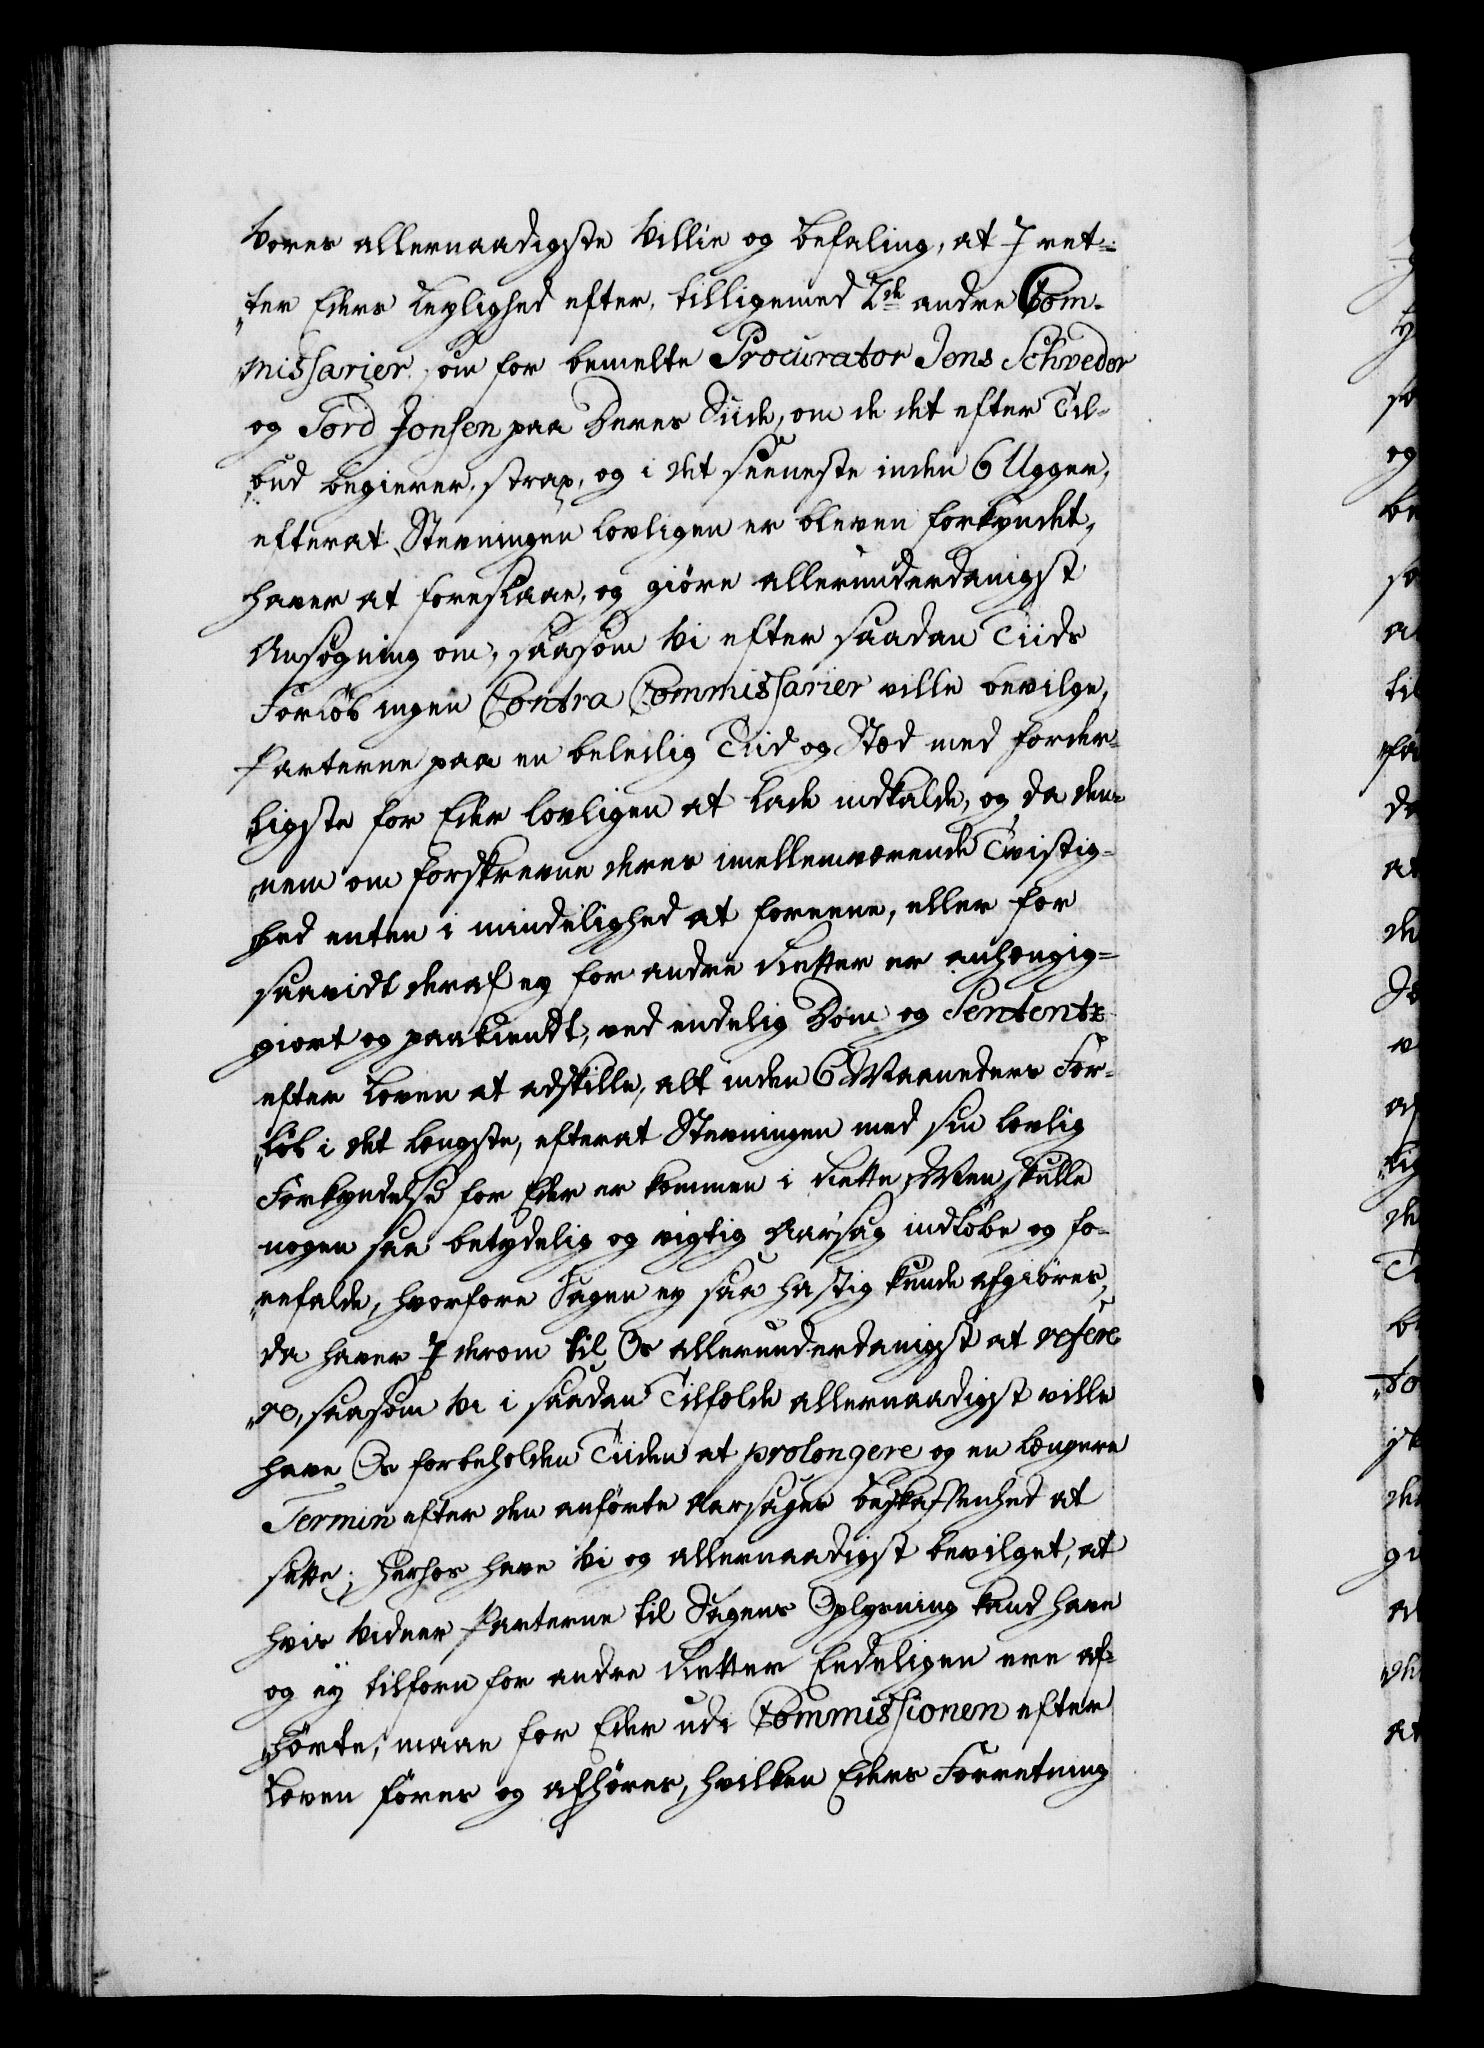 Vores allernaadigste Villie og Befaling, at I ret-
ter Eders Leylighed efter, tilligemed 2de andre Com-
missarier, som for bemelte Procurator Jens Schweder
og Tord Jonsen paa Deres Siide, om de det efter Til-
bud begierer, strax, og i det seeneste inden 6 Ugger,
efterat Stevningen lovligen er bleven forkyndet,
haver at foreslaae, og giøre allerunderdanigst
Ansøgning om, saasom Vi efter saadan Tiids
Forløb ingen Contra Commissarier ville bevilge,
Parterne paa en beleilig Tiid og Stæd med forder-
ligste for Eder lovligen at lade indkalde, og da den-
nem om forskrevne deres imellemværende Tvistig-
hed enten i mindelighed at foreene, eller for
saavidt deraf ey for andre Retter er anhængig-
giort og paakiendt, ved endelig Dom og Sententz
efter Loven at adskille, alt inden 6 Maaneders For-
løb i det længste, efterat Stevningen med sin lovlig
Forkyndelse for Eder er kommen i Rette, Men skulle
nogen saa betydelig og vigtig Aarsag indløbe og fo-
refalde, hvorfore Sagen ey saa hastig kunde afgiøres,
da haver I derom til Os allerunderdanigst at refere-
re, saasom Vi i saadan Tilfælde allernaadigst ville
have Os forbeholden Tiiden at prolongere og en længere
Termin efter den anførte Aarsages Beskaffenhed at
sette; Herhos have Vi og allernaadigst bevilget, at
hvis Vidner Parterne til Sagens Oplysning kand have
og ey tilforn for andre Retter Eedeligen ere af-
hørte, maae for Eder udi Commissionen efter
Loven føres og afhøres, hvilken Eders Forretning